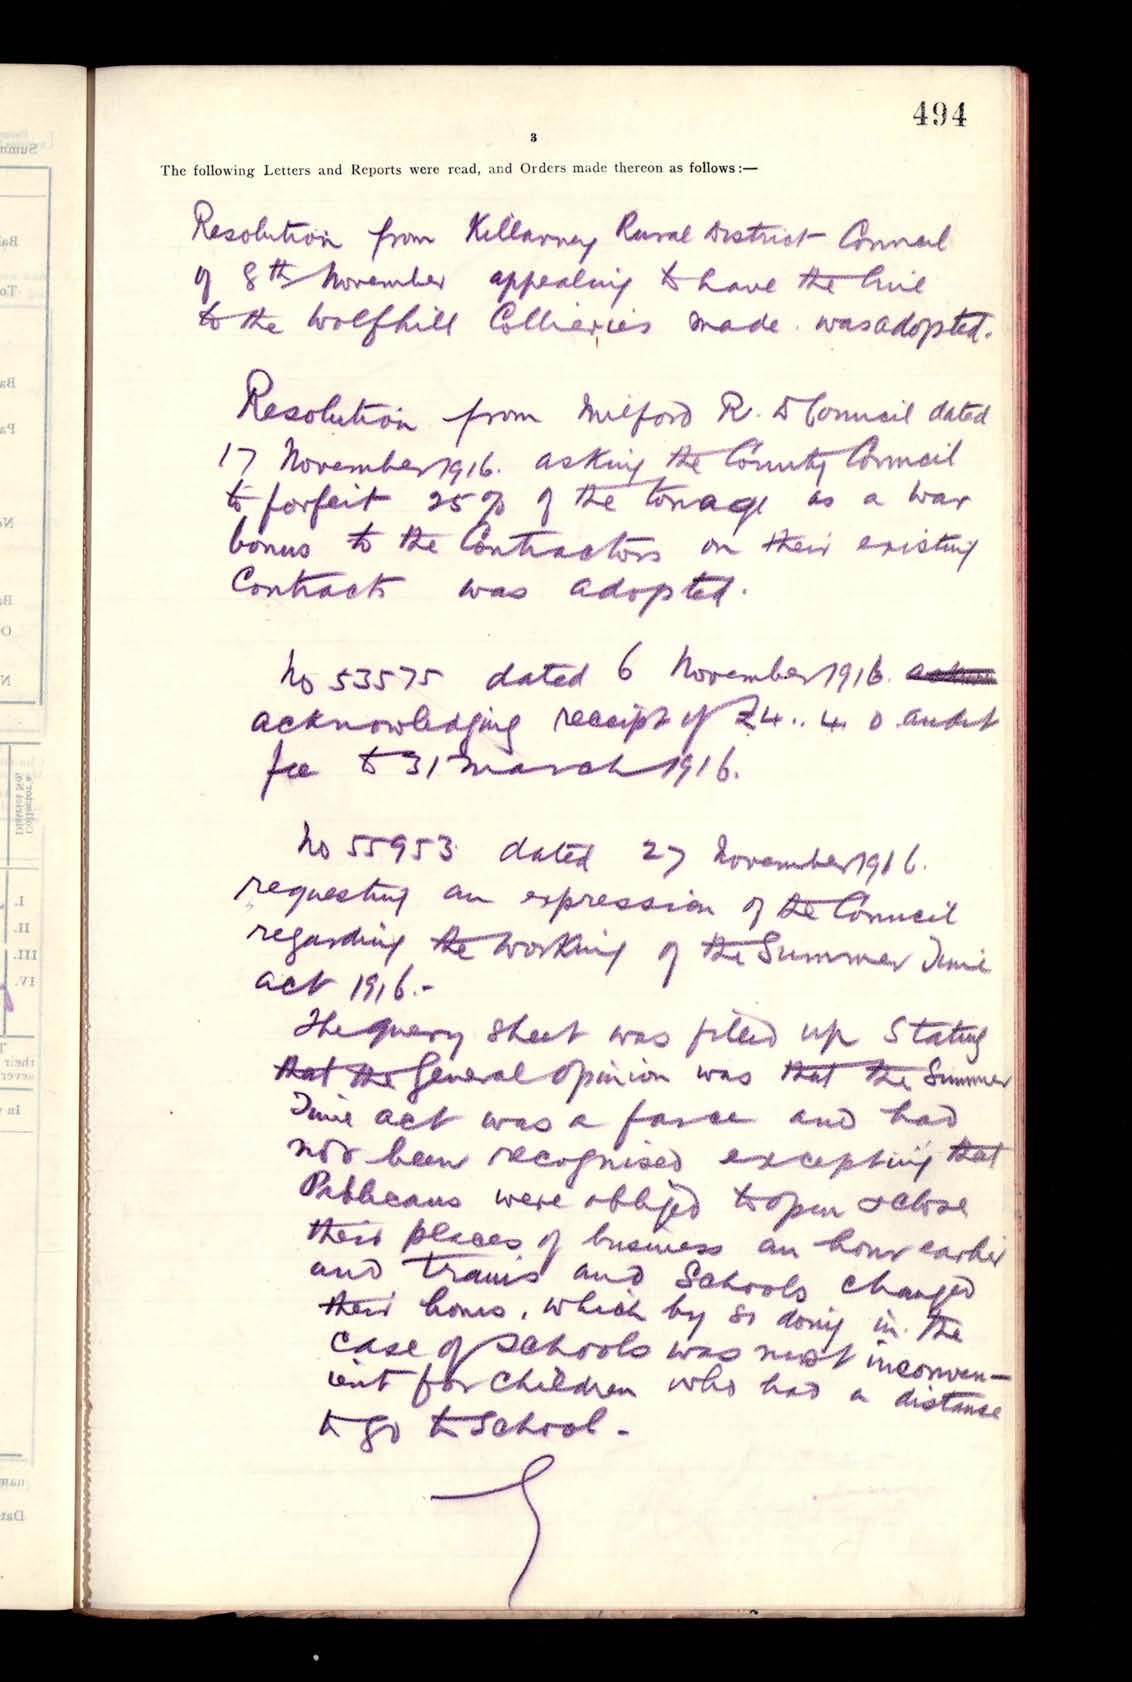 494
3
The following Letters and Reports were read, and Orders made thereon as follows:—
Resolution from Killarney Rural District Council
of 8th November appealing to have the line
to the Wolfhill Collieries made was adopted.
Resolution from Milford R. D Council dated
17 November 1916. asking the County Council
to forfeit 25% of the tonage as a war
bonus to the Contractors on their existing
Contracts was adopted.
No 53575 dated 6 November 1916.
acknowledging receipt of £4..4 0 audit
fee to 31 March 1916.
No 55953 dated 27 November 1916.
requesting an expression of the Council
regarding the working of the Summer Time
act 1916.-
The query sheet was filled up Stating
that the General Opinion was that the Summer
Time act was a farce and had
not been recognised excepting that
Publicans were obliged to open & close
their places of business an hour earlier
and trains and Schools changed
their hours, which by so doing in the
case of Schools was most inconven-
ient for children who had a distance
to go to School.-